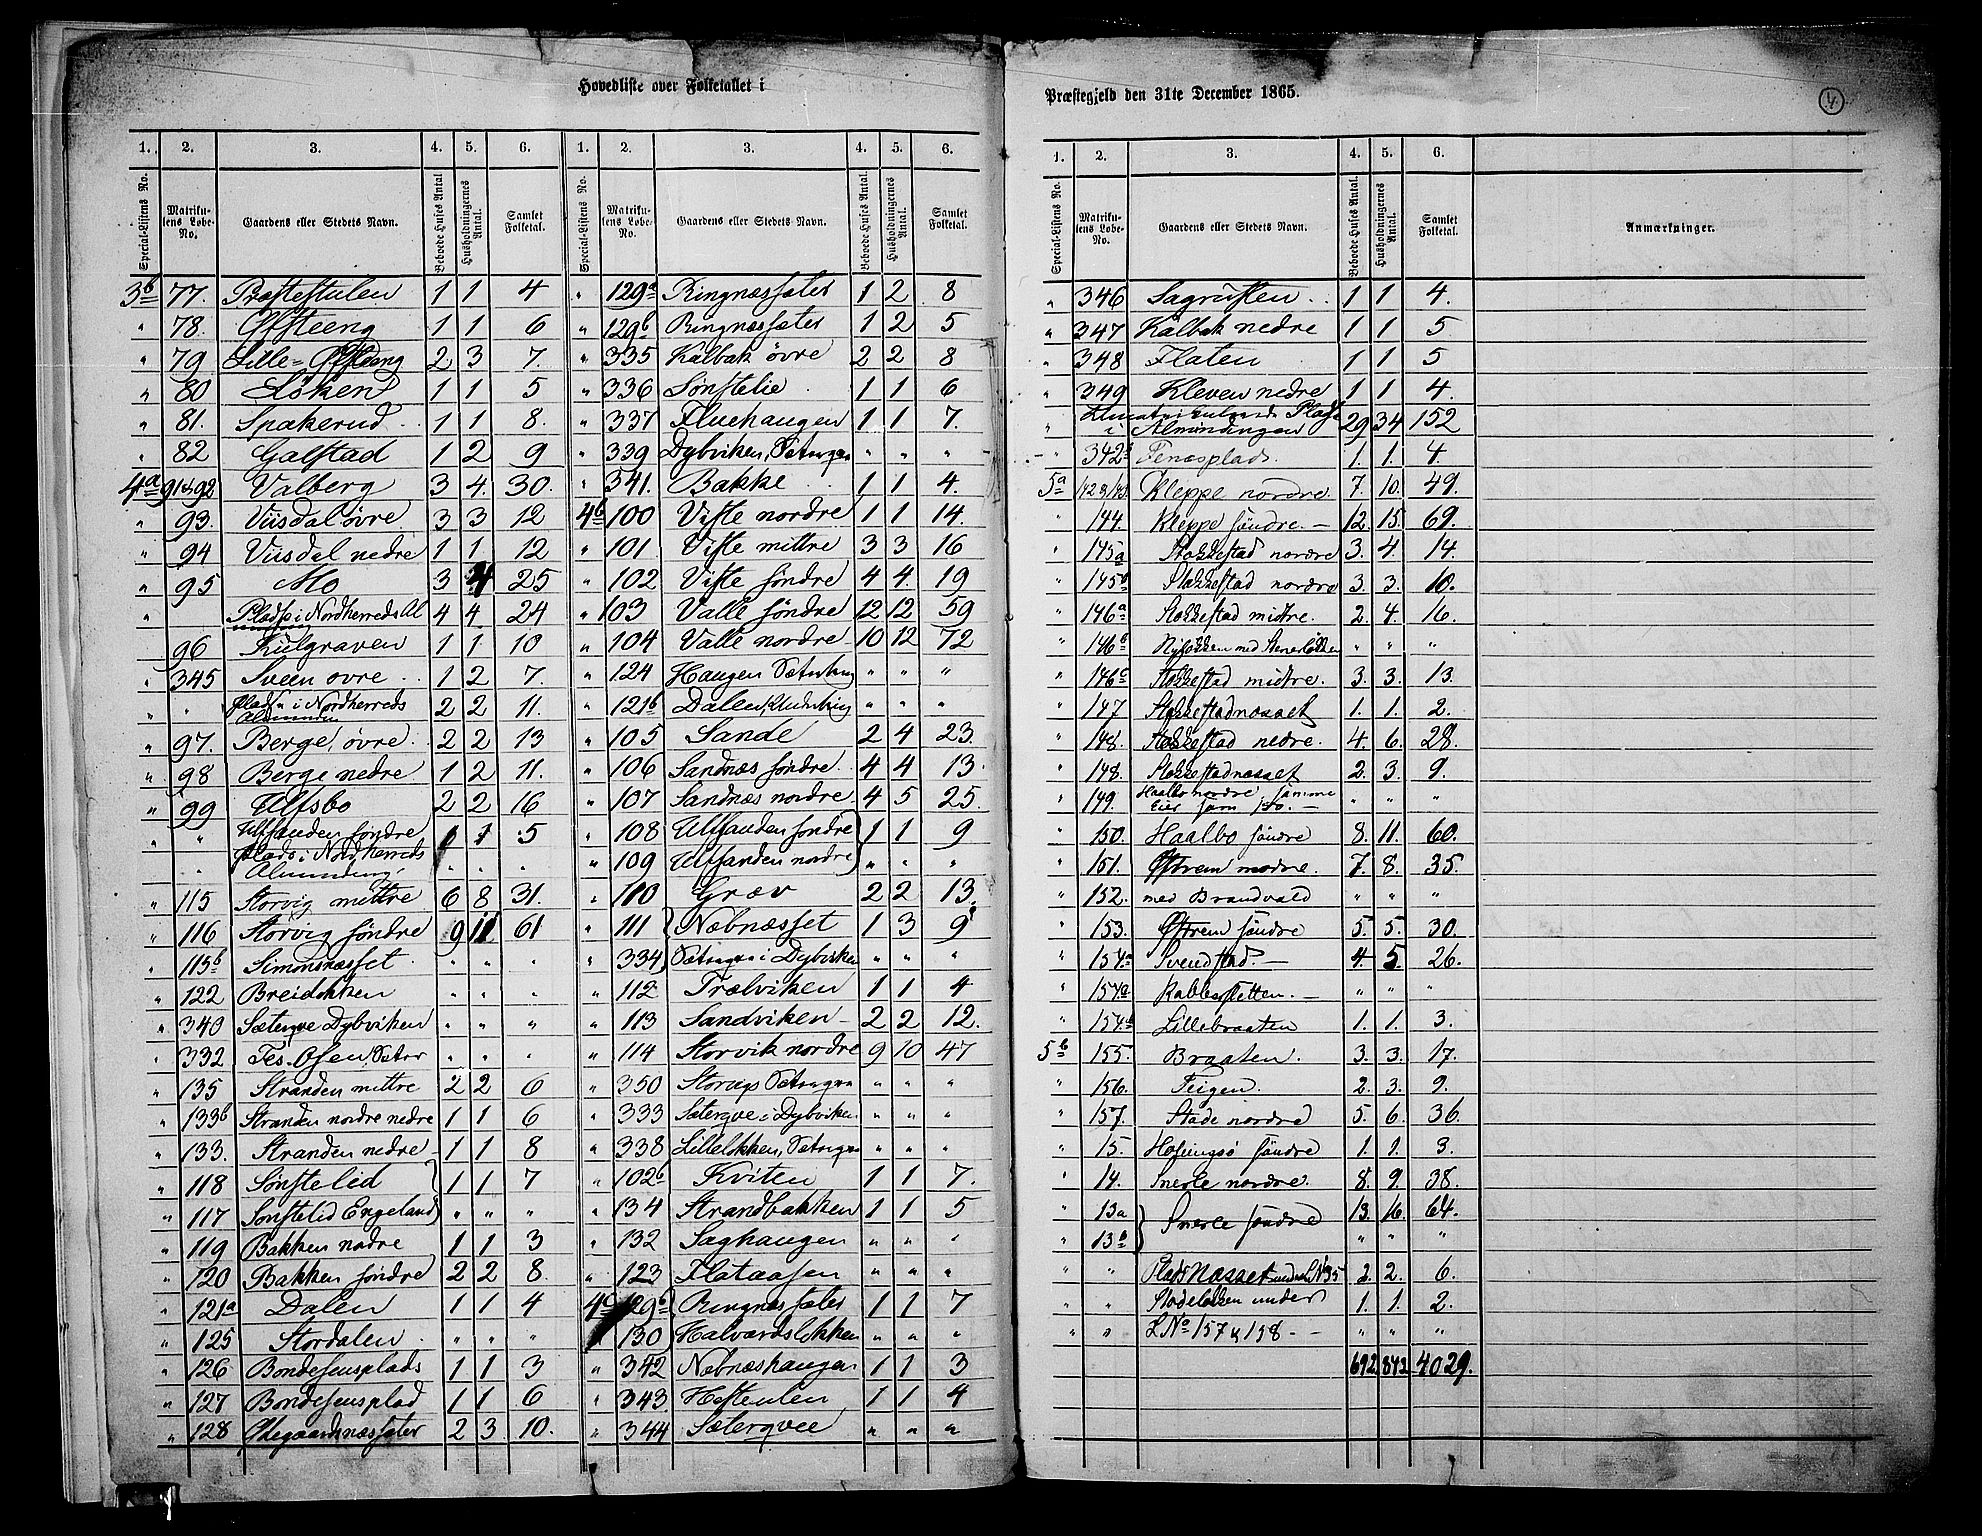 Hovedliste over Folketallet i
Præstegjeld den 31te December 1865.
4
1. 2. 3. 4. 5. 6. 1. 2. 3. 4. 5. 6.
Special-Listens No. Matrikulens Løbe-No. Gaardens eller Stedets Navn. Beboede Huses Antal Husholdningernes Antal. Samlet Folketal. Special-Listens No. Matrikulens Løbe-No. Gaardens eller Stedets Navn. Beboede Huses Antal. Husholdningernes Antal. Samlet Folketal.
3b 77. Præstestulen 1 1 4
" 78. Øfsteeng 1 1 6
" 79 Lille= Øfsteng 2 3 7.
" 80 Løken 1 1 5
" 81. Spakerud 1 1 8.
" 82 Galstad 1 2 9
4a 91&92 Valberg 3 4. 30.
" 93. Viisdal øvre 3 3 12
" 94 Viisdal nedre 1 1 12
" 95 Mo 3 4 25
" Pladse i Nordherreds Al 4 4 24
96 Kulgraven 1 1 10
" 345 Sveen øvre 1 2 7.
" " Pladse i Nordherreds Almending 2 2 11.
" 97. Berge, øvre 2 2 13
" 98 Berge nedre 1 2 11.
" 99 Ulfsbo 2 2 16
" " Ulfsanden søndre 1 1 5
" Plads i Nordherreds Almending " " "
" 115 Storvig mittre 6 8 31.
" 116 Storvig søndre 9 11 61
" 115b Simonsnæsset " " "
" 122 Breidløkken " " "
" 340 Sæterqve Dybviken " " "
" 332 Tes-Osen, Sæter " " "
" 135 Stranden mittre 2 2 6
" 133b Stranden nordre nedre 1 1 6
" 133. Stranden nedre 1 1 8
" 118 Sønstelid 1 1 7
" 117 Sønstelid Engeland " " "
" 119 Bakken nordre 1 1 3
" 120 Bakken søndre 2 2 8.
" 121a Dalen 1 1 4
" 125 Stordalen " " "
" 126 Bondesensplads 1 1 3
" 127 Bondesensplad 1 1 6
" 128 Ødegaardnæssæter 2 3 10.
" 129a Ringnæssæter 1 2 8
" 129b Ringnæssæter 1 2 5
" 335 Kalbak øvre 2 2 8
" 336 Sønstelie 1 1 6
" 337 Fluehaugen 1 1 7.
" 339 Dybviken, " " "
" 341. Bakke 1 1 4.
4b 100 Viste nordre 1 1 14.
" 101 Viste mittre 3 3 16
" 102 Viste søndre 4 4. 19
" 103 Valle søndre 12 12 59
" 104 Valle nordre 10 12 72
" 124 Haugen " " "
" 121b Dalen, " " "
" 105 Sande 2 4 23.
" 106 Sandnæs søndre 4 4 13.
" 107 Sandnæs nordre 4 5 25.
" 108 Ulfsanden søndre 1 1 9
" 109 Ulfsanden nordre " " "
" 110 Græv 2 2 13.
" 111 Næbnæsset 1 3 9
" 334 i Dybviken " " "
" 112 Trælviken 1 1 4
" 113 Sandviken 2 2 12.
" 114 Storvik nordre 9 10 47
" 350 " " "
" 333 Sæterqve i Dybviken " " "
" 338 Lilleløkken, " " "
" 102b Kviten 1 1 7.
" 134 Strandbakken 1 1 5
" 132 Saghaugen " " "
" 123 Flataasen " " "
4c 129b Ringnæssæter 1 1 7
" 130 Halvardsløkken " " "
" 342 Næbnæshaugen 1 1 3
" 343. 1 1 4
" 344 Sæterqvee " " "
1. 2. 3. 4. 5. 6.
Special-Listens No. Matrikulens Løbe-No. Gaardens eller Stedets Navn. Beboede Huses Antal. Husholdningernes Antal. Samlet Folketal. Anmærkninger.
" 346 Sagrusten 1 1 4.
" 347 Kalbak nedre 1 1 5
" 348 Flaten 1 1 5
" 349 Kleven nedre 1 1 4
" Umatrikulerede Pladse i Almindingen 29 34 152
" 342b Tenæsplads 1. 1. 4.
5a 142&143 Kleppe nordre 7. 10. 49.
" 144. Kleppe søndre 12. 15. 69.
" 145a Stokkestad nordre 3. 4. 14.
" 145b Stokkestad nordre 3. 3. 10.
" 146a Stokkestad midtre. 2. 4. 16.
" 146b Nyløkken med Stenerløkken " " "
" 146c Stokkestad midtre. 3. 3. 13.
" 147 Stokkestadnæsset 1. 1. 2.
" 148. Stokkestad nedre. 4. 6. 28.
" 148. Stokkestadnæsset 2. 3. 9.
" 149. Haalbo nordre, samme Eier som 150. " " "
" 150. Haalbo søndre 8. 11. 60.
" 151. Øfstrem nordre 7. 8. 35.
" 152. med Brandvold " " "
" 153. Øfstrem søndre 5. 5. 30.
" 154a Svendstad. 4. 5. 26.
" 154a Kabbesletten. " " "
" 154b Lillebraaten 1. 1. 3.
5b 155. Braaten. 3. 3. 17.
" 156. Teigen. 2. 3. 9.
" 157. Stade nordre 5. 6. 36.
" 15. søndre 1. 1. 3.
" 14. Snerle nordre. 8. 9. 38.
" 13a Snerle søndre 13. 16. 64.
" 13b " " "
" " Plads Næsset under LNo 35 2. 2. 6.
" " Stadeløkken under 1. 1. 2.
" " LNo 157 & 158 " " "
692. 842. 4029.